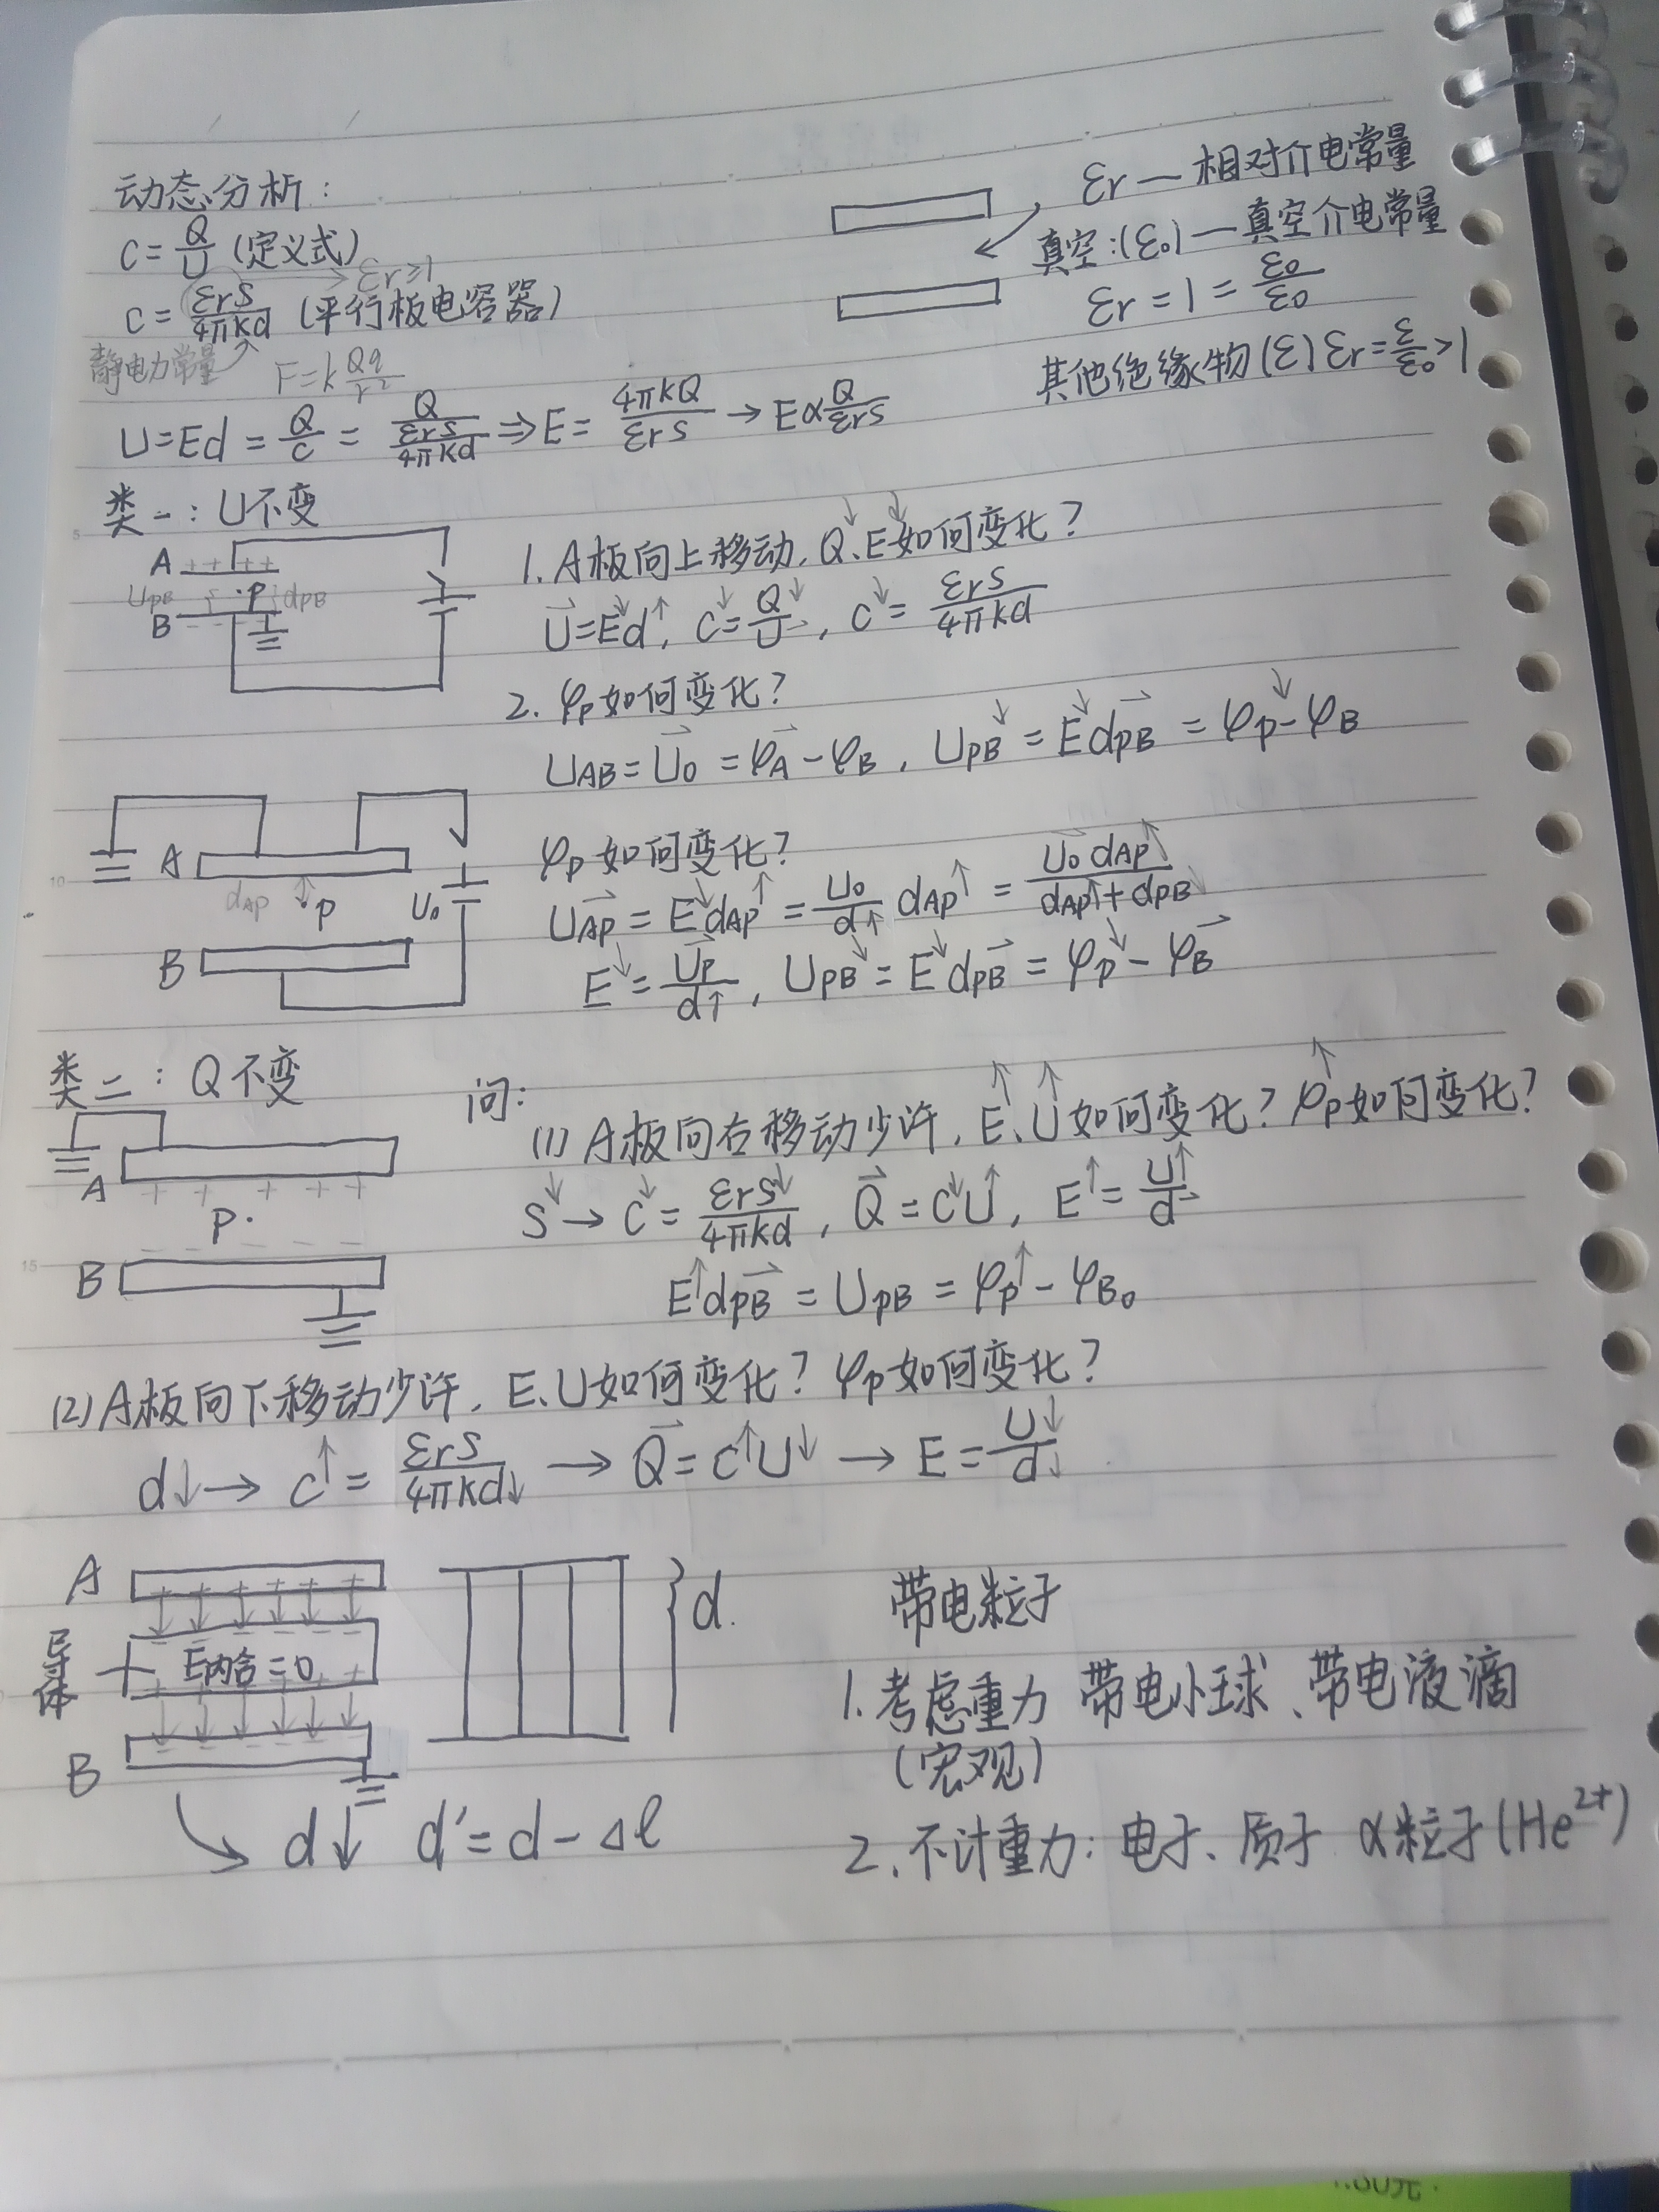 动态分析：
C = Q/U (定义式)
C = εrS/4πkd (平行板电容器)
→ εr≥1
静电力常量
F=k Qq/r²
U=Ed = Q/C = Q/(εrS/4πkd) ⇒ E = 4πkQ/εrS → E∝Q/εrS
εr — 相对介电常量
真空:(ε0) — 真空介电常量
εr = 1 = ε0/ε0
其他绝缘物(ε) εr = ε/ε0 >1
类一：U不变
A ++ ++
UPB · P dPB
B
1. A板向上移动, Q↓、E↓如何变化？
U→=E↓d↑, C↓=Q↓/U→, C↓= εrS/4πkd
2. φP如何变化？
UAB=U0→ = φA→-φB, UPB↓ = E↓dPB→ = φP↓-φB
A
dAP
·P
U0
B
φP如何变化？
UAP→ = E↓dAP↑ = U0/d↑ dAP↑ = U0→dAP↑/dAP↑+dPB
E↓ = UP→/d↑, UPB↓ = E↓dPB→ = φP↓-φB→
类二：Q不变
A
+ + + + +
P·
- - - - -
B
问：
(1) A板向右移动少许, E↑、U↑如何变化？φP↑如何变化？
S↓ → C↓ = εrS↓/4πkd, Q→ = C↓U↑, E↑ = U↑/d→
E↑dPB→ = UPB = φP↑-φB。
(2) A板向下移动少许, E、U如何变化？φP如何变化？
d↓ → C↑ = εrS/4πkd↓ → Q→ = C↑U↓ → E = U↓/d↓
A
导体
E内合=0
B
d.
↘ d↓ d′=d-Δl
带电粒子
1. 考虑重力 带电小球、带电液滴
(宏观)
2. 不计重力: 电子、质子 α粒子(He²⁺)
5
10
15